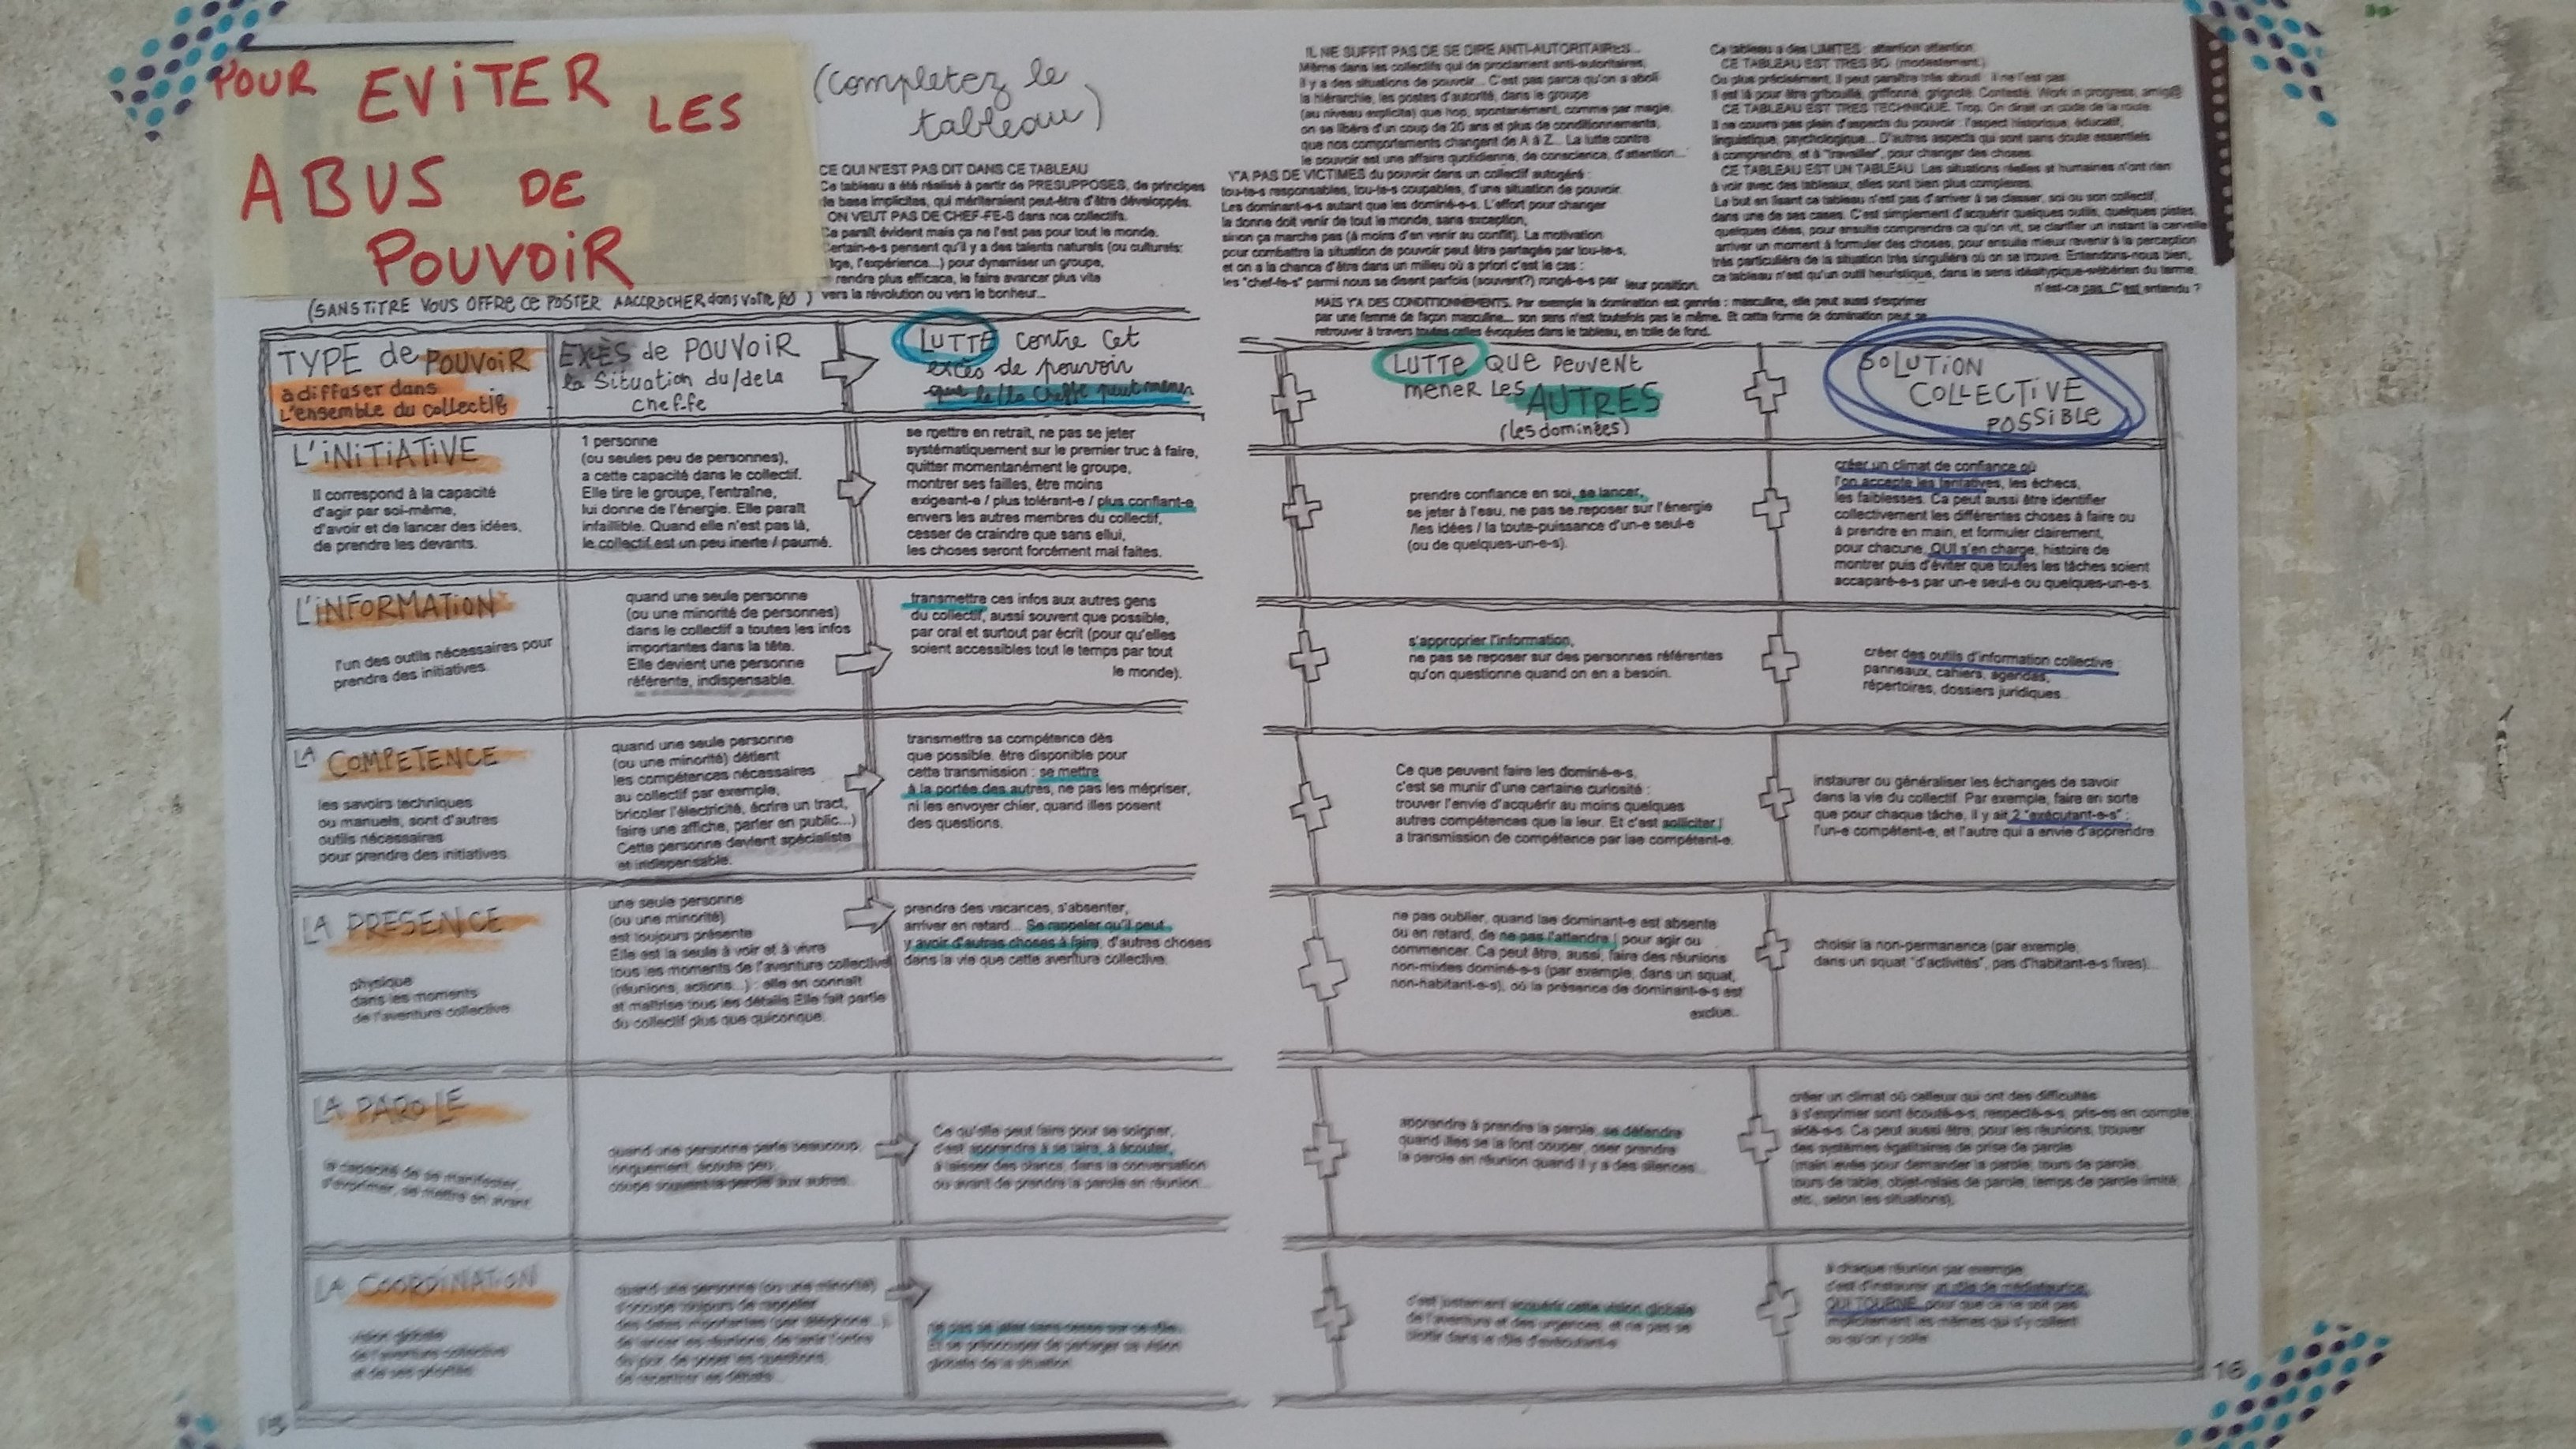 POUR EVITER LES
ABUS DE
POUVOIR
(completez le
tableau)
(SANS TITRE VOUS OFFRE CE POSTER A ACCROCHER dans votre
CE QUI N'EST PAS DIT DANS CE TABLEAU
Ce tableau a été réalisé à partir de PRESUPPOSES, de principes
de base implicites, qui mériteraient peut-être d'être développés.
ON VEUT PAS DE CHEF-FE-S dans nos collectifs.
Ca paraît évident mais ça ne l'est pas pour tout le monde.
Certain-e-s pensent qu'il y a des talents naturels (ou culturels:
âge, l'expérience...) pour dynamiser un groupe,
rendre plus efficace, le faire avancer plus vite
vers la révolution ou vers le bonheur...
IL NE SUFFIT PAS DE SE DIRE ANTI-AUTORITAIRES...
Même dans les collectifs qui de proclament anti-autoritaires,
il y a des situations de pouvoir... C'est pas parce qu'on a aboli
la hiérarchie, les postes d'autorité, dans le groupe
(au niveau explicite) que hop, spontanément, comme par magie,
on se libère d'un coup de 20 ans et plus de conditionnements,
que nos comportements changent de A à Z... La lutte contre
le pouvoir est une affaire quotidienne, de conscience, d'attention...
Y'A PAS DE VICTIMES du pouvoir dans un collectif autogéré :
tou-te-s responsables, tou-te-s coupables, d'une situation de pouvoir.
Les dominant-e-s autant que les dominé-e-s. L'effort pour changer
la donne doit venir de tout le monde, sans exception,
sinon ça marche pas (à moins d'en venir au conflit). La motivation
pour combattre la situation de pouvoir peut être partagée par tou-te-s,
et on a la chance d'être dans un milieu où a priori c'est le cas :
les "chef-fe-s" parmi nous se disent parfois (souvent?) rongé-e-s par leur position.
MAIS Y'A DES CONDITIONNEMENTS. Par exemple la domination est genrée : masculine, elle peut aussi s'exprimer
par une femme de façon masculine... son sens n'est toutefois pas le même. Et cette forme de domination peut se
retrouver à travers toutes celles évoquées dans le tableau, en toile de fond.
Ce tableau a des LIMITES : attention attention.
CE TABLEAU EST TRES BO. (modestement.)
Ou plus précisément, il peut paraître très abouti : il ne l'est pas.
Il est là pour être gribouillé, griffonné, grignoté. Contesté. Work in progress, amig@
CE TABLEAU EST TRES TECHNIQUE. Trop. On dirait un code de la route.
Il ne couvre pas plein d'aspects du pouvoir : l'aspect historique, éducatif,
linguistique, psychologique... D'autres aspects qui sont sans doute essentiels
à comprendre, et à "travailler", pour changer des choses.
CE TABLEAU EST UN TABLEAU. Les situations réelles et humaines n'ont rien
à voir avec des tableaux, elles sont bien plus complexes.
Le but en lisant ce tableau n'est pas d'arriver à se classer, soi ou son collectif,
dans une de ses cases. C'est simplement d'acquérir quelques outils, quelques pistes,
quelques idées, pour ensuite comprendre ce qu'on vit, se clarifier un instant la cervelle
arriver un moment à formuler des choses, pour ensuite mieux revenir à la perception
très particulière de la situation très singulière où on se trouve. Entendons-nous bien,
ce tableau n'est qu'un outil heuristique, dans le sens idéaltypique-wébérien du terme,
n'est-ce pas. C'est entendu ?
TYPE de POUVOIR
à diffuser dans
L'ensemble du collectif
EXCÈS de POUVOIR
la Situation du/de la
chef-fe
LUTTE contre Cet
excès de pouvoir
que le/la cheffe peut mener
LUTTE QUE PEUVENT
MENER LES AUTRES
(les dominées)
SOLUTION
COLLECTIVE
POSSIBLE
L'INITIATIVE
Il correspond à la capacité
d'agir par soi-même,
d'avoir et de lancer des idées,
de prendre les devants.
1 personne
(ou seules peu de personnes),
a cette capacité dans le collectif.
Elle tire le groupe, l'entraîne,
lui donne de l'énergie. Elle paraît
infaillible. Quand elle n'est pas là,
le collectif est un peu inerte / paumé.
se mettre en retrait, ne pas se jeter
systématiquement sur le premier truc à faire,
quitter momentanément le groupe,
montrer ses failles, être moins
exigeant-e / plus tolérant-e / plus confiant-e
envers les autres membres du collectif,
cesser de craindre que sans ellui,
les choses seront forcément mal faites.
prendre confiance en soi, se lancer,
se jeter à l'eau, ne pas se reposer sur l'énergie
/les idées / la toute-puissance d'un-e seul-e
(ou de quelques-un-e-s).
créer un climat de confiance où
l'on accepte les tentatives, les échecs,
les faiblesses. Ca peut aussi être identifier
collectivement les différentes choses à faire ou
à prendre en main, et formuler clairement,
pour chacune, QUI s'en charge, histoire de
montrer puis d'éviter que toutes les tâches soient
accaparé-e-s par un-e seul-e ou quelques-un-e-s.
L'INFORMATION
l'un des outils nécessaires pour
prendre des initiatives.
quand une seule personne
(ou une minorité de personnes)
dans le collectif a toutes les infos
importantes dans la tête.
Elle devient une personne
référente, indispensable.
transmettre ces infos aux autres gens
du collectif, aussi souvent que possible,
par oral et surtout par écrit (pour qu'elles
soient accessibles tout le temps par tout
le monde).
s'approprier l'information,
ne pas se reposer sur des personnes référentes
qu'on questionne quand on en a besoin.
créer des outils d'information collective :
panneaux, cahiers, agendas,
répertoires, dossiers juridiques...
LA COMPETENCE
les savoirs techniques
ou manuels, sont d'autres
outils nécessaires
pour prendre des initiatives.
quand une seule personne
(ou une minorité) détient
les compétences nécessaires
au collectif par exemple,
bricoler l'électricité, écrire un tract,
faire une affiche, parler en public...)
Cette personne devient spécialiste
et indispensable.
transmettre sa compétence dès
que possible. être disponible pour
cette transmission : se mettre
à la portée des autres, ne pas les mépriser,
ni les envoyer chier, quand illes posent
des questions.
Ce que peuvent faire les dominé-e-s,
c'est se munir d'une certaine curiosité :
trouver l'envie d'acquérir au moins quelques
autres compétences que la leur. Et c'est solliciter l
a transmission de compétence par lae compétent-e.
instaurer ou généraliser les échanges de savoir
dans la vie du collectif. Par exemple, faire en sorte
que pour chaque tâche, il y ait 2 "exécutant-e-s" :
l'un-e compétent-e, et l'autre qui a envie d'apprendre.
LA PRESENCE
physique
dans les moments
de l'aventure collective.
une seule personne
(ou une minorité)
est toujours présente
Elle est la seule à voir et à vivre
tous les moments de l'aventure collective
(réunions, actions...) : elle en connaît
et maîtrise tous les détails. Elle fait partie
du collectif plus que quiconque.
prendre des vacances, s'absenter,
arriver en retard... Se rappeler qu'il peut
y avoir d'autres choses à faire, d'autres choses
dans la vie que cette aventure collective.
ne pas oublier, quand lae dominant-e est absente
ou en retard, de ne pas l'attendre ! pour agir ou
commencer. Ca peut être, aussi, faire des réunions
non-mixtes dominé-e-s (par exemple, dans un squat,
non-habitant-e-s), où la présence de dominant-e-s est
exclue..
choisir la non-permanence (par exemple,
dans un squat "d'activités", pas d'habitant-e-s fixes)...
LA PAROLE
la capacité de se manifester,
s'exprimer, se mettre en avant.
quand une personne parle beaucoup,
longuement, écoute peu,
coupe souvent la parole aux autres...
Ce qu'elle peut faire pour se soigner,
c'est apprendre à se taire, à écouter,
à laisser des blancs, dans la conversation
ou avant de prendre la parole en réunion...
apprendre à prendre la parole, se défendre
quand illes se la font couper, oser prendre
la parole en réunion quand il y a des silences...
créer un climat où celleux qui ont des difficultés
à s'exprimer sont écouté-e-s, respecté-e-s, pris-es en compte,
aidé-e-s. Ca peut aussi être, pour les réunions, trouver
des systèmes égalitaires de prise de parole
(main levée pour demander la parole, tours de parole,
tours de table, objet-relais de parole, temps de parole limité,
etc., selon les situations).
LA COORDINATION
vision globale
de l'aventure collective
et de ses priorités.
quand une personne (ou une minorité)
s'occupe toujours de rappeler
des dates importantes (par téléphone...)
de lancer les réunions, de tenir l'ordre
du jour, de poser les questions,
de recentrer les débats...
ne pas se jeter sans cesse sur ce rôle.
Et se préoccuper de partager sa vision
globale de la situation.
c'est justement acquérir cette vision globale
de l'aventure et des urgences, et ne pas se
blottir dans le rôle d'exécutant-e.
à chaque réunion par exemple,
c'est d'instaurer un rôle de médiateurice,
QUI TOURNE, pour que ce ne soit pas
implicitement les mêmes qui s'y collent
ou qu'on y colle.
15
16